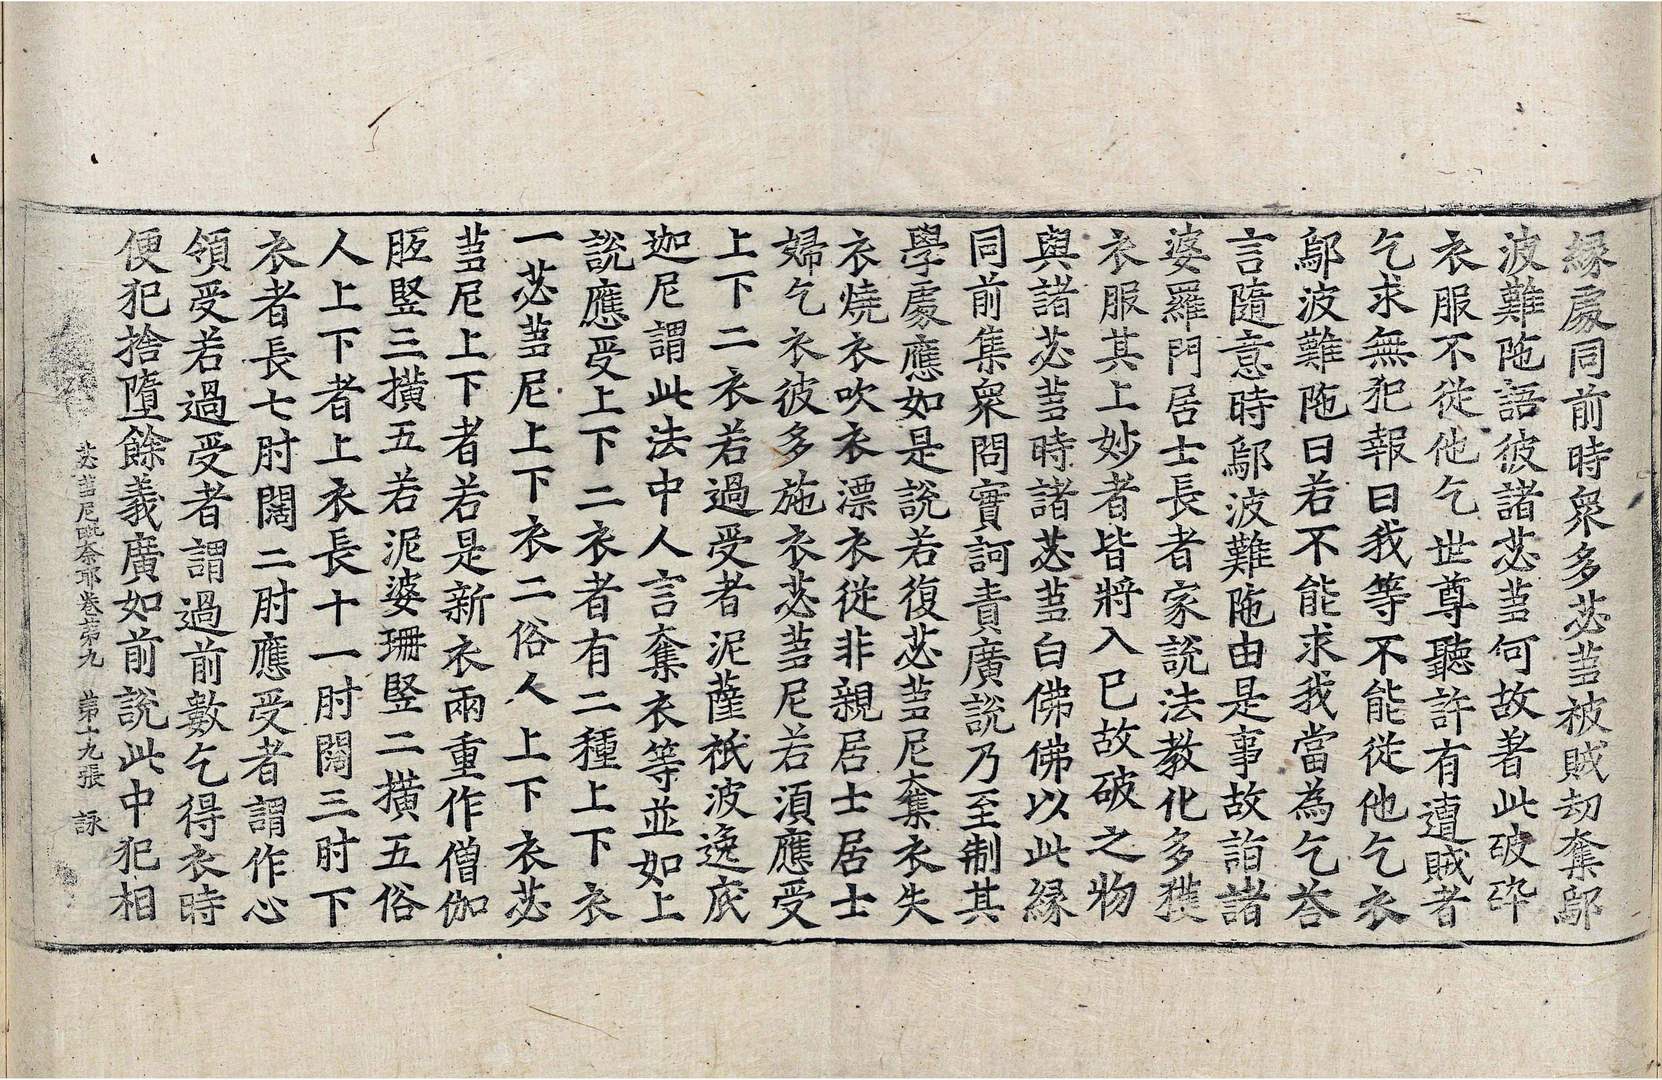 緣處同前時衆多苾蒭被賊刧奪鄔
波難陁語彼諸苾蒭何故著此破碎
衣服不從他乞世尊聽許有遭賊者
乞求無犯報曰我等不能從他乞衣
鄔波難陁曰若不能求我當為乞荅
言隨意時鄔波難陁由是事故詣諸
婆羅門居士長者家說法教化多獲
衣服其上妙者皆將入已故破之物
與諸苾蒭時諸苾蒭白佛佛以此緣
同前集衆問實訶責廣說乃至制其
學處應如是說若復苾蒭尼奪衣失
衣燒衣吹衣漂衣從非親居士居士
婦乞衣彼多施衣苾蒭尼若湏應受
上下二衣若過受者泥薩祇波逸底
迦尼謂此法中人言奪衣等並如上
說應受上下二衣者有二種上下衣
一苾蒭尼上下衣二俗人上下衣苾
蒭尼上下者若是新衣兩重作僧伽
胝竪三撗五若泥婆珊竪二撗五俗
人上下者上衣長十一肘闊三肘下
衣者長七肘闊二肘應受者謂作心
領受若過受者謂過前數乞得衣時
便犯捨墮餘義廣如前說此中犯相
苾蒭尼毗奈耶卷苐九 苐十九張 詠